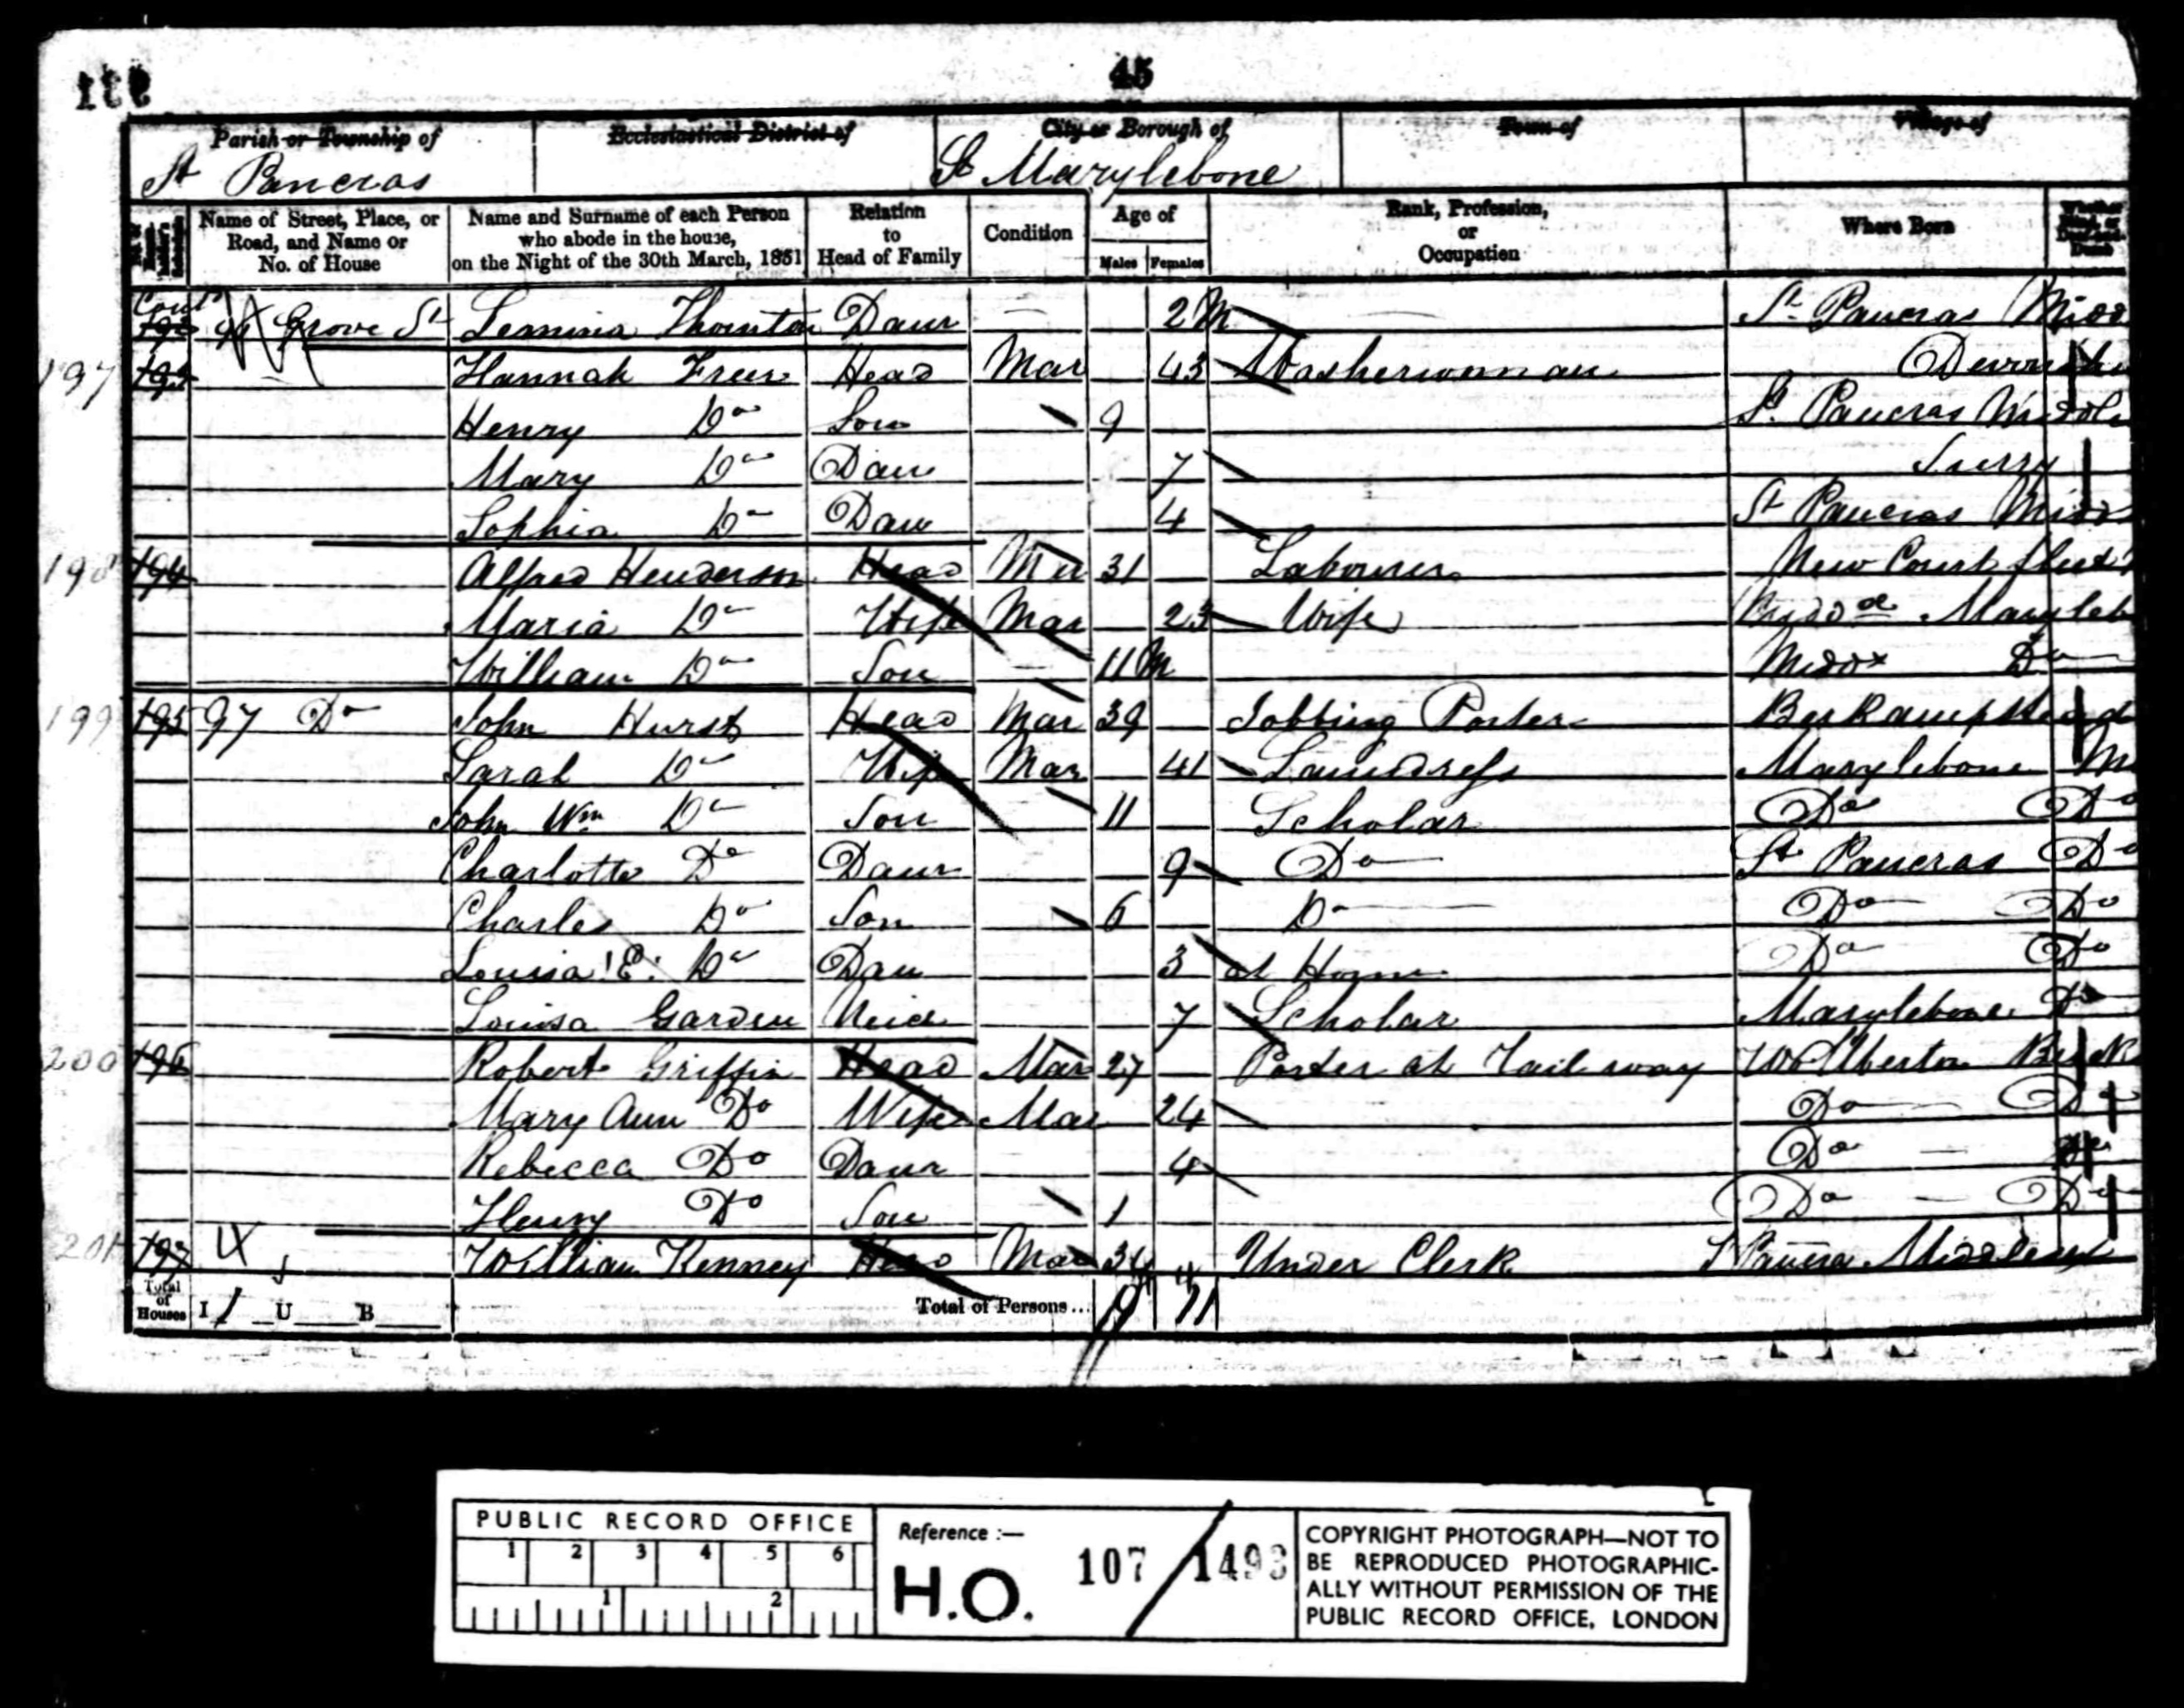 45
Parish or Township of Ecclesiastical District of City or Borough of Town of Village of
St Pancras St Marylebone
Name of Street, Place, or Road, and Name or No. of House
Name and Surname of each Person who abode in the house, on the Night of the 30th March, 1851
Relation to Head of Family
Condition
Age of
Males Females
Rank, Profession, or Occupation
Where Born
Cont Grove St Thornton Daur 2 M St Pancras Midd
197 Hannah Head Mar 43 Washerwoman
Henry Do Son 9 St Pancras
Mary Do Dau 7 Surry
Sophia Do Dau 4 St Pancras
198 194 Alfred Henderson Head Mar 31 Labourer New Court
Maria Do Wife Mar 23 Wife
William Do Son 11 M Middx Do
199 195 97 Do John Hurst Head Mar 39 Jobbing Porter
Sarah Do Wife Mar 41 Laundress Marylebone
John Wm Do Son 11 Scholar Do Do
Charlotte Do Daur 9 Do St Pancras Do
Charles Do Son 6 Do Do Do
Louisa E. Do Dau 3 at Home Do Do
Louisa Garden Neice 7 Scholar Marylebone Do
200 196 Robert Griffin Head Mar 27 Porter at Railway
Mary Ann Do Wife Mar 24 Do Do
Rebecca Do Daur 4 Do
Henry Do Son 1 Do Do
201 197 William Kenney Head Mar Under Clerk Middlesex
Total of Houses I 1 U B Total of Persons... 9 11
PUBLIC RECORD OFFICE
1 2 3 4 5 6
1 2
Reference :—
H.O. 107 / 1493
COPYRIGHT PHOTOGRAPH—NOT TO
BE REPRODUCED PHOTOGRAPHIC-
ALLY WITHOUT PERMISSION OF THE
PUBLIC RECORD OFFICE, LONDON